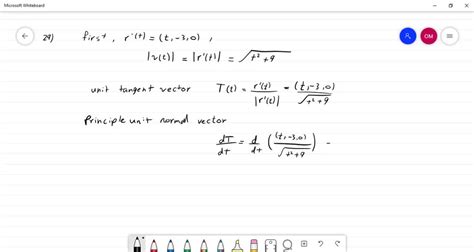 Microsoft Whiteboard
29) first, r'(t) = (t, -3, 0) ,
|v(t)| = |r'(t)| = √t² + 9
unit tangent vector T(t) = r'(t) / |r'(t)| = (t, -3, 0) / √t² + 9
Principle unit normal vector
dT/dt = d/dt ( (t, -3, 0) / √t² + 9 ) -
DM